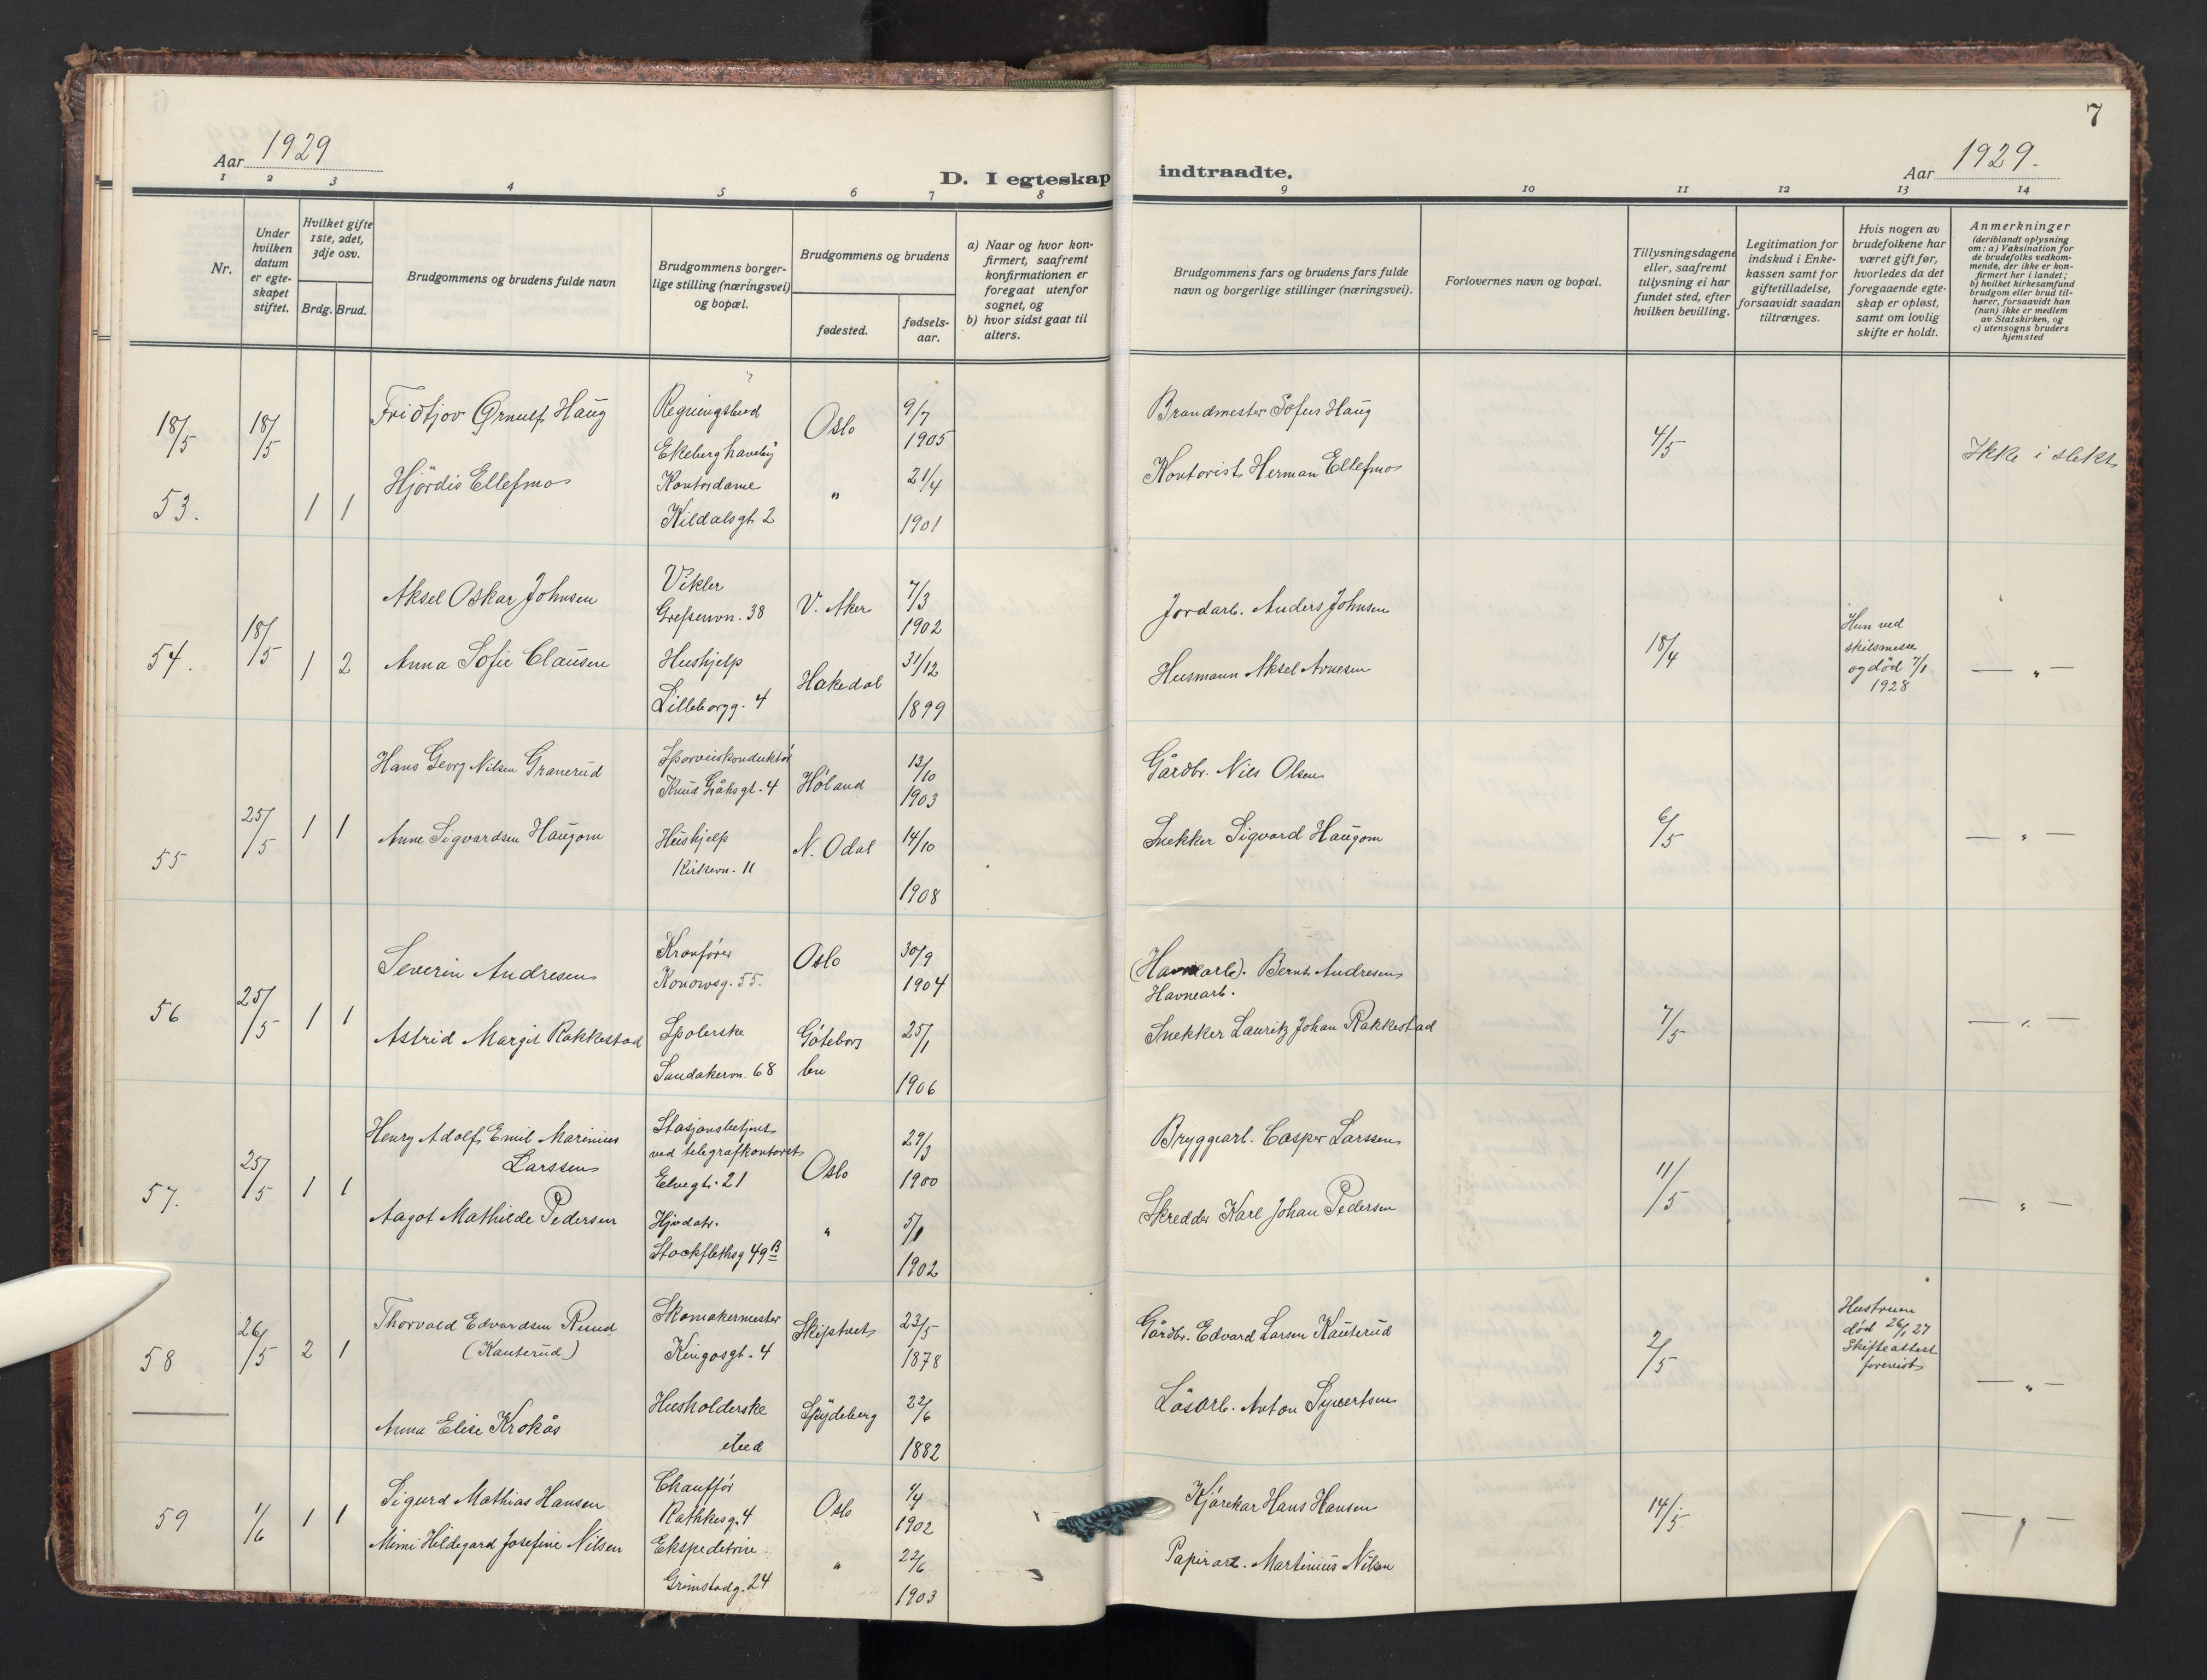 7
Aar 1929
D. I egteskap indtraadte.
Aar 1929.
1 2 3 4 5 6 7 8 9 10 11 12 13 14
Nr.
Under hvilken datum er egteskapet stiftet.
Hvilket gifte 1ste, 2det, 3dje osv.
Brdg. Brud.
Brudgommens og brudens fulde navn
Brudgommens borgerlige stilling (næringsvei) og bopæl.
Brudgommens og brudens
fødested.
fødselsaar.
a) Naar og hvor konfirmert, saafremt konfirmationen er foregaat utenfor sognet, og
b) hvor sidst gaat til alters.
Brudgommens fars og brudens fars fulde navn og borgerlige stillinger (næringsvei).
Forlovernes navn og bopæl.
Tillysningsdagene eller, saafremt tillysning ei har fundet sted, efter hvilken bevilling.
Legitimation for indskud i Enkekassen samt for giftetilladelse, forsaavidt saadan tiltrænges.
Hvis nogen av brudefolkene har været gift før, hvorledes da det foregaaende egteskap er opløst, samt om lovlig skifte er holdt.
Anmerkninger
(deriblandt oplysning om: a) Vaksination for de brudefolks vedkommende, der ikke er konfirmert her i landet; b) hvilket kirkesamfund brudgom eller brud tilhører, forsaavidt han (hun) ikke er medlem av Statskirken, og c) utensogns bruders hjemsted
18/5 18/5 Fridtjov Ørnulf Haug Regningsbud Oslo 9/7 Brandmester Sofus Haug 4/5 Ikke i slekt
Ekeberg haveby 1905
Hjördis Ellefmo Kontordame " 21/4 Kontorist Herman Ellefmo
53. 1 1 Kildalsgt. 2 1901
Aksel Oskar Johnsen Vikler V. Aker 7/3 Jordarb. Anders Johnsen
Grefsenvn. 38 1902
54. 18/5 1 2 Anna Sofie Clausen Hushjelp Hakedal 31/12 Husmann Aksel Arnesen 18/4 Hun ved skilsmesse og död 7/1 1928 — " —
Lilleborgg. 4 1899
Hans Georg Nilsen Granerud Sporveiskonduktör Höland 13/10 Gårdbr. Nils Olsen
Knud Gråhsgt. 4 1903
55 25/5 1 1 Anne Sigvardsen Haugom Hushjelp N. Odal 14/10 Snekker Sigvard Haugom 6/5 — " —
Kirkevn. 11 1908
Severin Andresen Kranförer Oslo 30/9 (Havnearb). Bernt Andresen
Konowsg. 55. 1904 Havnearb.
56 25/5 1 1 Astrid Margit Rakkestad Spolerske Göteborg 25/1 Snekker Lauritz Johan Rakkestad 7/5 — " —
Sandakervn. 68 1906
Henry Adolf Emil Marinius Stasjonsbetjent 29/3 Bryggearb. Casper Larssen
Larssen ved telegrafkontoret Oslo
57. 25/5 1 1 Elvegt. 21 1900 11/5 — " —
Aagot Mathilde Pedersen " Skredder Karl Johan Pedersen
Stockflethsg 49 B 1902
Thorvald Edvardsen Ruud Skomakermester Skiptvet 23/5 Gårdbr. Edvard Larsen Kauterud Hustruen
58 26/5 2 1 (Kauterud) Kingosgt. 4 1878 2/5 död 26/1 27 Skifteattest forevist — " —
Anna Elise Krokås Husholderske Spydeberg 22/6 Lösarb. Anton Syvertsen
ibid 1882
Sigurd Mathias Hansen Chaufför Oslo Kjörekar Hans Hansen
59 1/6 1 1 Rathkesg. 4 1902 14/5 — " —
Mimi Hildegard Josefine Nilsen Ekspeditrise " 22/6 Papirarb. Martinius Nilsen
Grimstadg. 24 1903